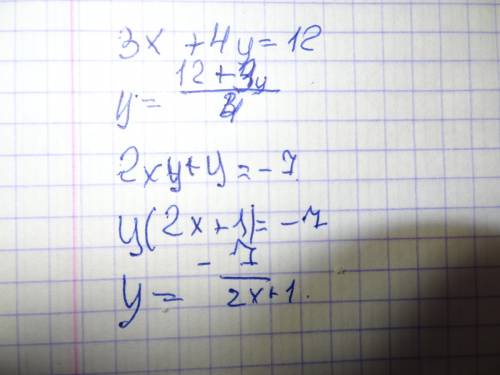 3x + 4y = 12
y = 12 + 3y /
2xy + y = - 7
y(2x + 1) = - 7
y = - 7 / 2x + 1.